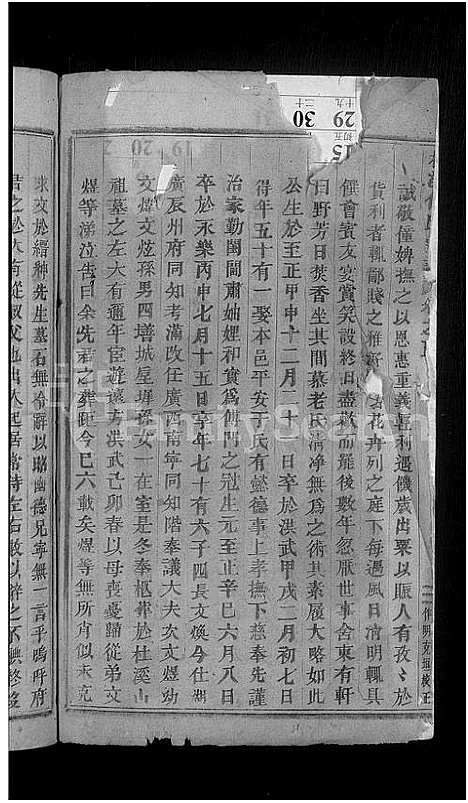 誠敬僮婢撫之以恩惠重義輕利遇儉歲出粟以賑人有孜〻於
貨利者輒鄙賤之雅好
花卉列之庭下每遇風日清明輒具
饌會賓友宴賞笑談終日盡歡而罷後數年忽厭世事舍東有軒
曰野芳日焚香坐其間慕老氏清淨無為之術其素履大略如此
公生於至正甲申十二月二十
日卒於洪武甲戌二月初七日
得年五十有一娶本邑平安于氏有懿德事上孝撫下慈奉先謹
治家勤閨閫肅妯娌和實為
門之冠生元至正辛巳六月八日
卒於永樂丙申七月十五日享年七十有六子四長文煥今仕湖
廣辰州府同知考滿改任廣西南寧同知階奉議大夫次文煜幼
文煒文炫孫男四墡城垕墀孫女一在室是冬奉柩葬於杜溪山
祖墓之左大有通年宦遊遠方洪武己卯春以母喪憂歸從弟文
煜等涕泣告曰余先君之葬距今巳六載矣煜等無所肖似未克
求文於縉紳先生墓石無
辭以昭幽德兄寧無一言乎嗚呼府
君之於大有從叔父也出入起居常侍左右教以
之不
29
30
15
19
20
十九
初五